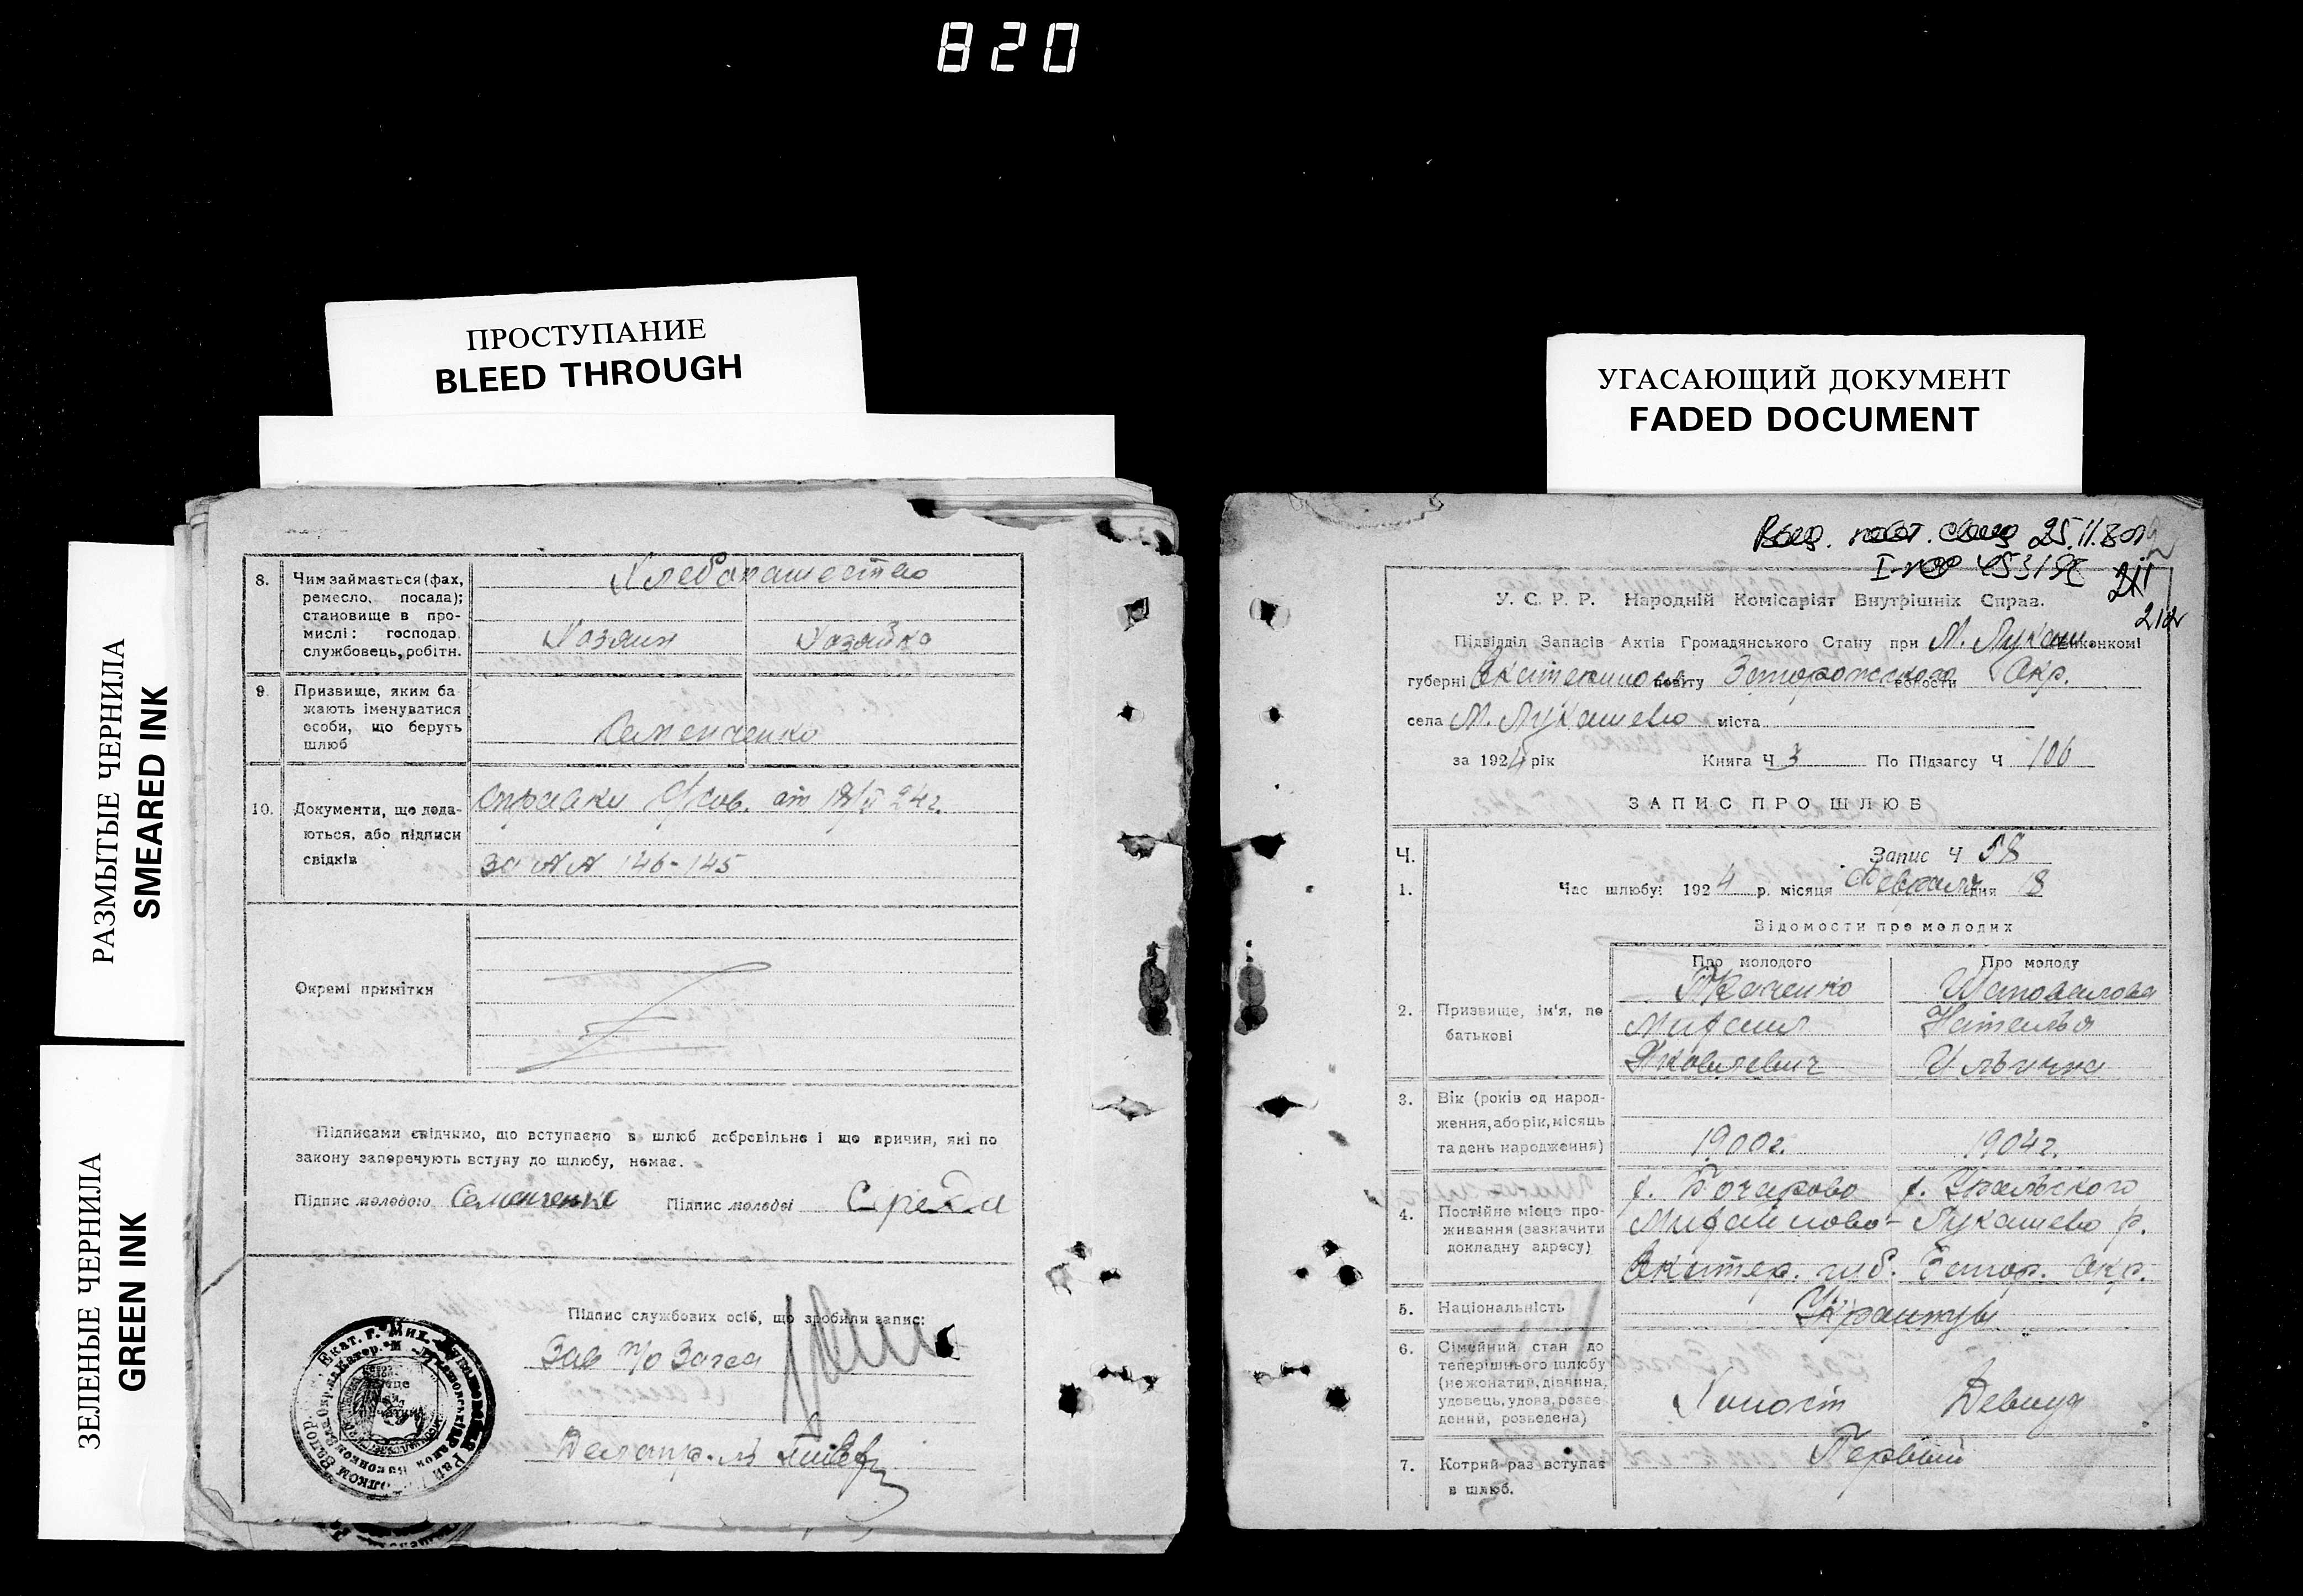 820
ПРОСТУПАНИЕ
BLEED THROUGH
УГАСАЮЩИЙ ДОКУМЕНТ
FADED DOCUMENT
РАЗМЫТЫЕ ЧЕРНИЛА
SMEARED INK
ЗЕЛЕНЫЕ ЧЕРНИЛА
GREEN INK
8. Чим займається (фах,
ремесло, посада);
становище в про-
мислі: господар.
службовець, робітн.
Хлебопашество
Хозяин Хозяйка
9. Призвище, яким ба-
жають іменуватися
особи, що беруть
шлюб
Семенченко
10. Документи, що дода-
ються, або підписи
свідків
справки с/сов. от 18/II 24г.
за NN 146-145
Окремі примітки
Підписами свідчимо, що вступаємо в шлюб добровільно і що причин, які по
закону заперечують вступу до шлюбу, немає.
Підпис молодого Семенченко Підпис молодої Середа
Підпис службових осіб, що зробили запис:
Зав п/о Загса
Делопр.
25.11.80
211
212
У. С. Р. Р. Народній Комісаріят Внутрішніх Справ.
Підвідділ Записів Актів Громадянського Стану при М. Лукаш виконкомі
губерні Екатеринослав повіту Запорожского волости Окр.
села М. Лукашево міста
за 1924 рік Книга Ч 3 По Підзагсу Ч 106
ЗАПИС ПРО ШЛЮБ
Ч. Запис Ч 58
1. Час шлюбу: 1924 р. місяця Февраля дня 18
Відомости про молодих
Про молодого Про молоду
2. Призвище, ім'я, по
батькові
Ткаченко Шаповалова
Михаил Наталья
Яковлевич Ильична
3. Вік (років од народ-
ження, або рік, місяць
та день народження)
1900г. 1904г.
4. Постійне місце про-
живання (зазначити
докладну адресу)
х. Бочарово х. Уральского
Михайлово- Лукашево р.
Екатер. губ. Запор. Окр.
5. Національність
Украинцы
6. Сімейний стан до
теперішнього шлюбу
(нежонатий, дівчина,
удовець, удова, розве-
дений, розведена)
Холост Девица
7. Котрий раз вступає
в шлюб.
Первый